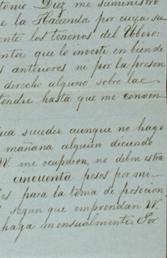 tonio Diaz me suministro
de la Hacienda por cuya su
ente los terrenos del Ubero:
enta que lo invertí en biende
s anteriores ni por la presen
derecho alguno sobre las
tendré hasta que me conven
ea suceder aunque no hago
mañana alguien diciendo
W. me ocuparon, no den esta
cincuenta pesos por mi
les para la toma de posecion
segun que emprendan W.
haga mensualmente. Eso